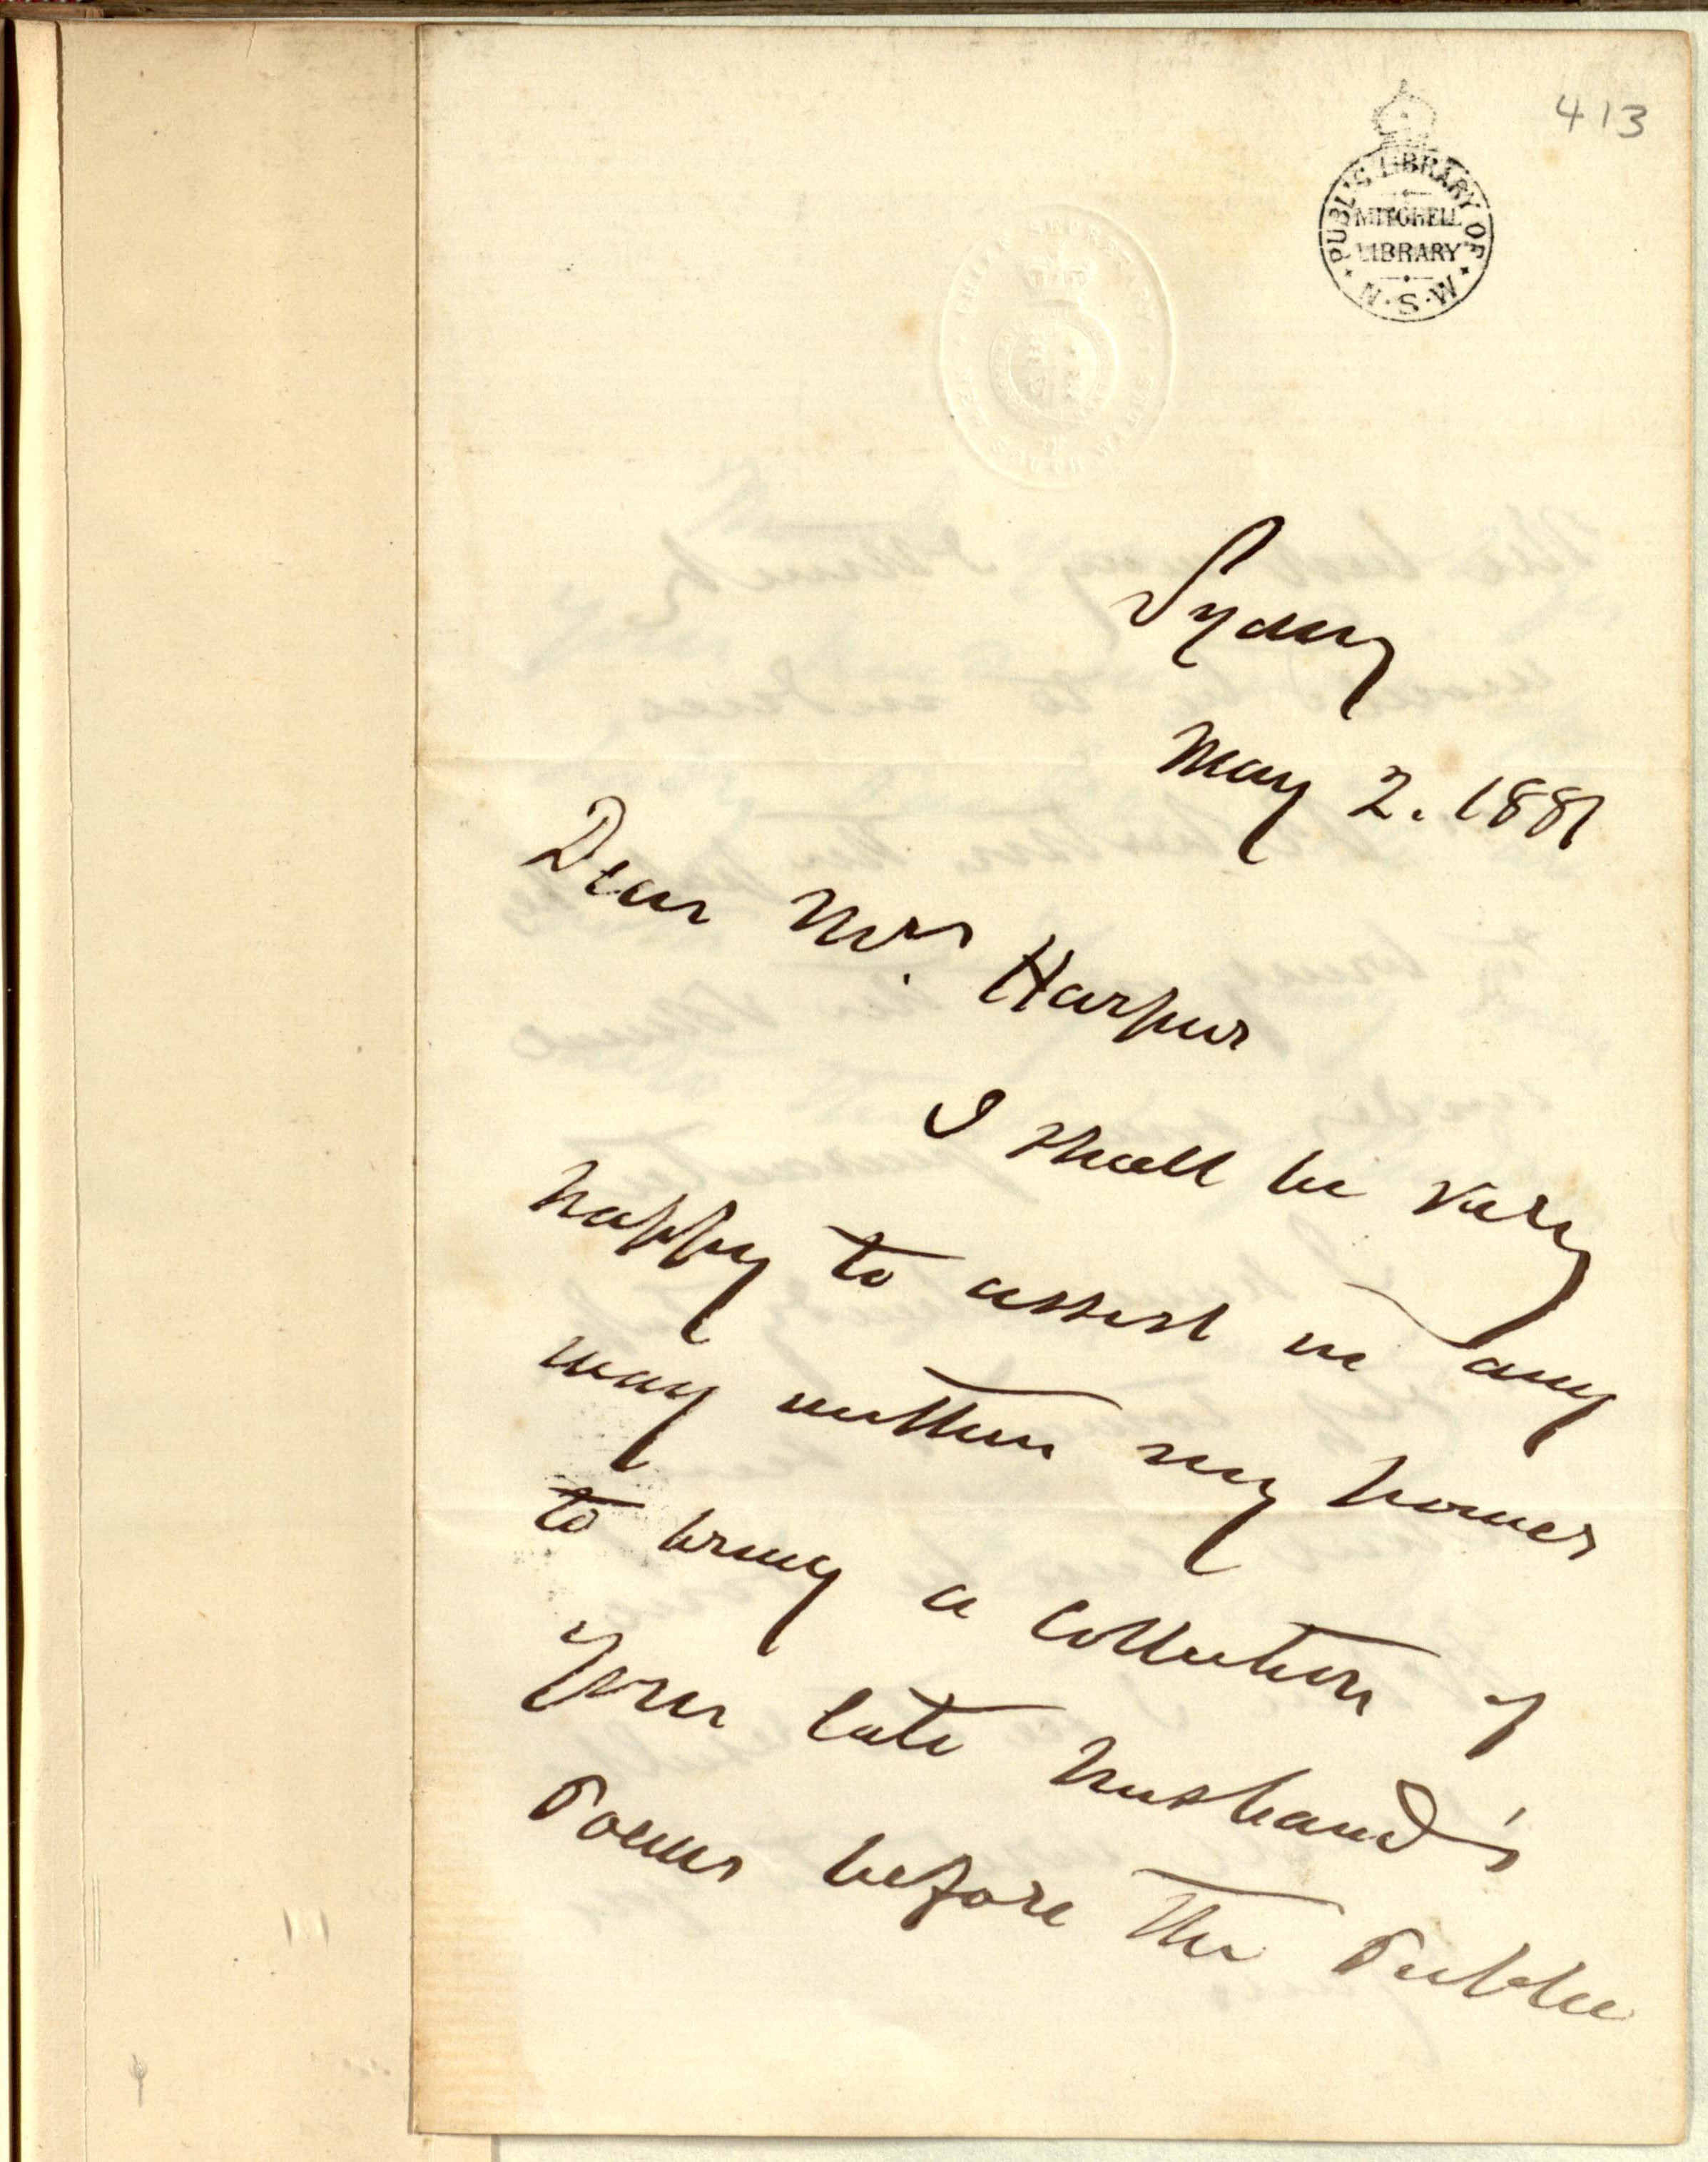 413
PUBLIC LIBRARY OF N.S.W.
MITCHELL
LIBRARY
CHIEF SECRETARY
Sydney
May 2. 1881
Dear Mrs. Harpur
I shall be very
happy to assist in any
way within my power
to bring a collection of
your late husband's
Poems before the Public